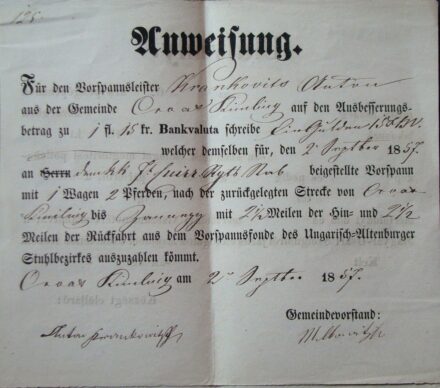 125.
Anweisung.
Für den Vorspannsleister Krankovits Anton
aus der Gemeinde Oroas auf den Ausbesserungs-
betrag zu 1 fl. 15 kr. Bankvaluta schreibe Ein Gulden 15 x BV.
welcher demselben für, den 2 Septber 1857.
an Herrn dem kk Rgts Stab beigestellte Vorspann
mit 1 Wagen 2 Pferden, nach der zurückgelegten Strecke von Oroas
bis mit 2 1/2 Meilen der Hin- und 2 1/2
Meilen der Rückfahrt aus dem Vorspannsfonde des Ungarisch-Altenburger
Stuhlbezirkes auszuzahlen kömmt.
Oroas am 2 Septber 1857.
Gemeindevorstand:
Anton